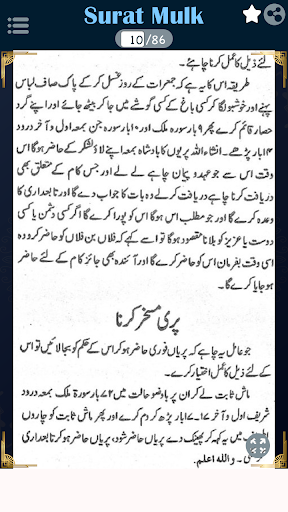 Surat Mulk
10/86
لئے ذیل کا عمل کرنا چاہئے۔
طریقہ اس کا یہ ہے کہ جمعرات کے روز غسل کر کے پاک صاف لباس
پہنے اور خوشبو لگا کر کسی باغ کے کسی گوشے میں جا کر بیٹھے جائے اور اپنے گرد
حصار قائم کرے پھر ۹ بار سورہ ملک اور ۱۰ بار سورہ جن بمعہ اول و آخر درود
۱۴ بار پڑھے۔ انشاءاللہ پریوں کا بادشاہ بمعہ اپنے لاؤلشکر کے حاضر ہو گا اس
وقت اس سے جو عہد و پیان چاہے لے لے اور جس کام کے متعلق بھی
دریافت کرنا چاہے دریافت کر لے وہ بات کا جواب دے گا اور تابعداری کا
وعدہ کرے گا اور جو مطلب اس ہوگا اس کو پورا کرے گا اگر کسی دشمن یا کسی
دوست یا عزیز کو بلانا مقصود ہو گا تو اسے کہے کہ فلاں بن فلاں کو حاضر کرو وہ
اسی وقت بفرمان اس کو حاضر کرے گا اور آئندہ بھی جائز کام کے لئے حاضر
ہو جایا کرے گا۔
پری مسخر کرنا
جو عامل یہ چاہے کہ پریاں فوری حاضر ہو کر اس کے حکم کو بجا لائیں تو اس
کے لئے ذیل کا عمل اختیار کرے۔
ماش ثابت لے کر ان پر باوضو حالت میں ۷۲ بار سورۃ ملک بمعہ درود
شریف اول و آخر ۱۷۔۱۷ بار پڑھ کر دم کرے اور پھر ماش ثابت کو چاروں
میں یہ کہہ کر پھینک دے پریاں حاضر شود، پریاں حاضر ہو کرنا بعداری
۔ واللہ اعلم۔